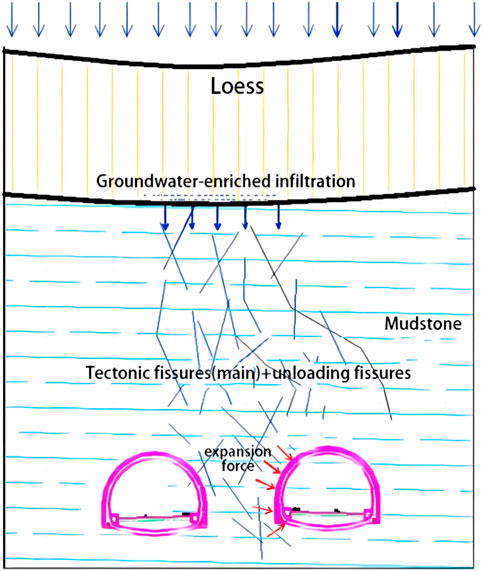 Loess
Groundwater-enriched infiltration
Mudstone
Tectonic fissures(main)+unloading fissures
expansion
force